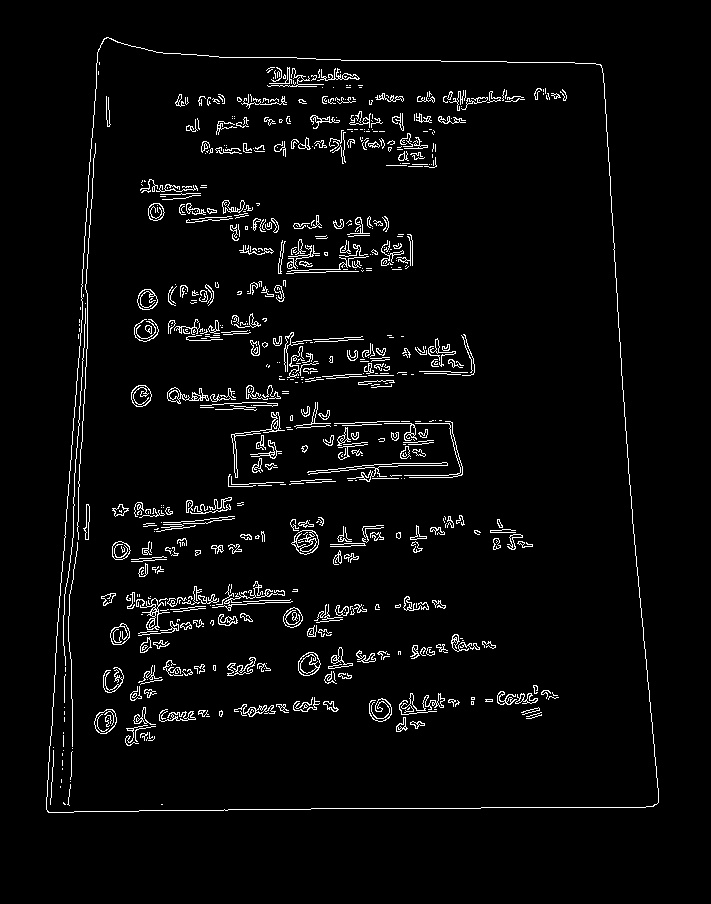 Differentiation
Let f(x) represent a curve, then its differentiation f'(x)
at point x=c gives slope of the curve
Derivatives of f at x is f'(x) = dy/dx
Theorems-
① Chain Rule-
y = f(u) and u = g(x)
then dy/dx = dy/du × du/dx
② (f ± g)' = f' ± g'
③ Product Rule-
y = uv
dy/dx = u dv/dx + v du/dx
④ Quotient Rule-
y = u/v
dy/dx = (v du/dx - u dv/dx) / v²
☆ Basic Results-
① d/dx xⁿ = n xⁿ⁻¹ d/dx √x = 1/2 x^(1/2-1) = 1/(2√x)
☆ Trigonometric functions-
① d/dx sin x = cos x ② d/dx cos x = -sin x
③ d/dx tan x = sec² x ④ d/dx sec x = sec x tan x
⑤ d/dx cosec x = -cosec x cot x ⑥ d/dx cot x = -cosec² x